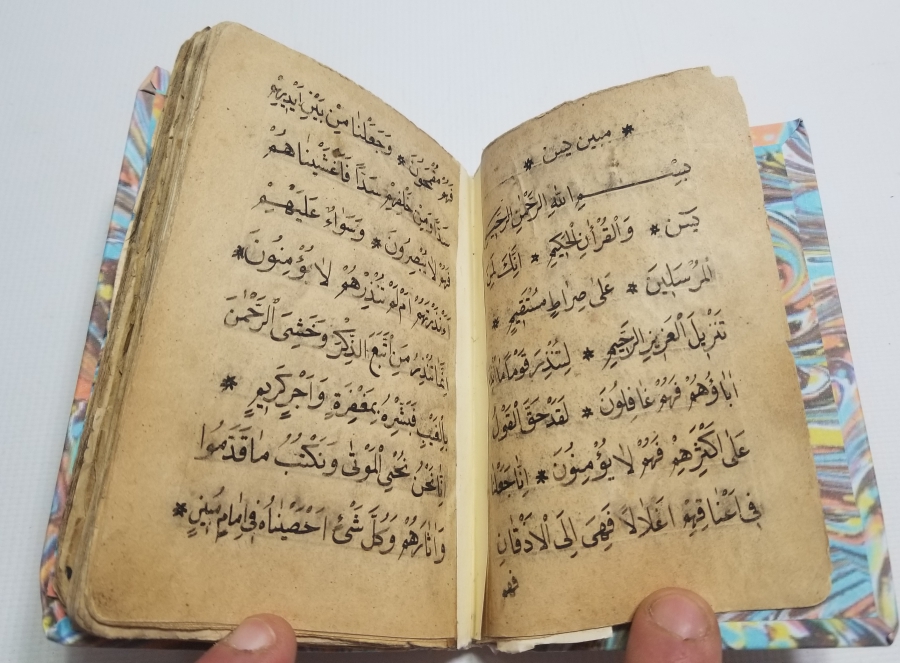 * مبين يس *
بِسْــــــمِ اللّٰهِ الرَّحْمٰنِ الرَّحِيمِ
يٰسٓ * وَالْقُرْاٰنِ الْحَكِيمِ * اِنَّكَ لَمِنَ
الْمُرْسَلِينَ * عَلٰى صِرَاطٍ مُسْتَقِيمٍ *
تَنْزِيلَ الْعَزِيزِ الرَّحِيمِ * لِتُنْذِرَ قَوْمًا مَا
اٰبَاؤُهُمْ فَهُمْ غَافِلُونَ * لَقَدْ حَقَّ الْقَوْلُ
عَلٰى اَكْثَرِهِمْ فَهُمْ لَا يُؤْمِنُونَ * اِنَّا جَعَلْنَا
فِى اَعْنَاقِهِمْ اَغْلَالًا فَهِىَ اِلَى الْاَذْقَانِ
فهم
فَهُمْ مُقْمَحُونَ * وَجَعَلْنَا مِنْ بَيْنِ اَيْدِيهِمْ
سَدًّا وَمِنْ خَلْفِهِمْ سَدًّا فَاَغْشَيْنَاهُمْ
فَهُمْ لَا يُبْصِرُونَ * وَسَوَاءٌ عَلَيْهِمْ
ءَاَنْذَرْتَهُمْ اَمْ لَمْ تُنْذِرْهُمْ لَا يُؤْمِنُونَ *
اِنَّمَا تُنْذِرُ مَنِ اتَّبَعَ الذِّكْرَ وَخَشِىَ الرَّحْمٰنَ
بِالْغَيْبِ فَبَشِّرْهُ بِمَغْفِرَةٍ وَاَجْرٍ كَرِيمٍ *
اِنَّا نَحْنُ نُحْىِ الْمَوْتٰى وَنَكْتُبُ مَا قَدَّمُوا
وَاٰثَارَهُمْ وَكُلَّ شَىْءٍ اَحْصَيْنَاهُ فِى اِمَامٍ مُبِينٍ *